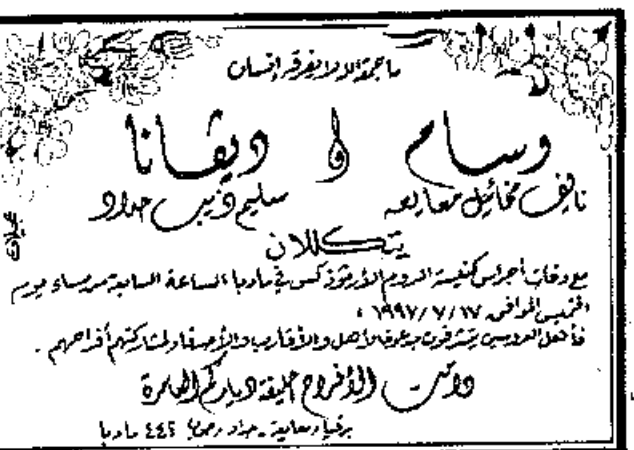 ما جمعه الله لا يفرقه إنسان
وسام و ديڤانا
نايف مخائيل معايعه سليم ذيب حداد
يتكللان
مع دقات أجراس كنيسة الروم الأرثوذكس في مادبا الساعة السابعة من مساء يوم
الخميس الموافق ١٩٩٧/٧/١٧ ،
فأهل العروسين يتشرفون بدعوة الأهل والأقارب والأصدقاء لمشاركتهم أفراحهم .
دامت الأفراح حليفة دياركم العامرة
برقيا معايعة - حداد ص.ب ٤٤٢ مادبا